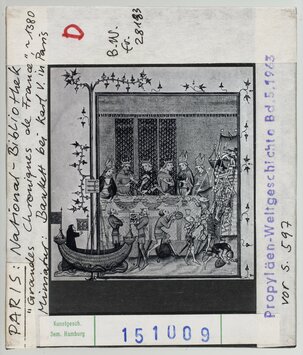 PARIS: National-Bibliothek
"Grandes Chroniques de France", ~1380
Miniatur: Bankett bei Karl V. in Paris
D
B.W.
fr.
28133
Propyläen-Weltgeschichte Bd.5, 1963
vor S. 597
Kunstgesch.
Sem. Hamburg
151009